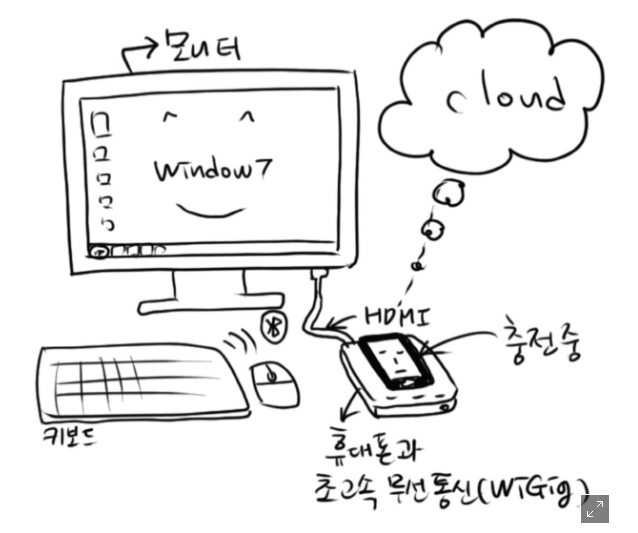 모니터
cloud
Window7
HDMI
충전중
키보드
휴대폰과
초고속 무선통신(WiGig)